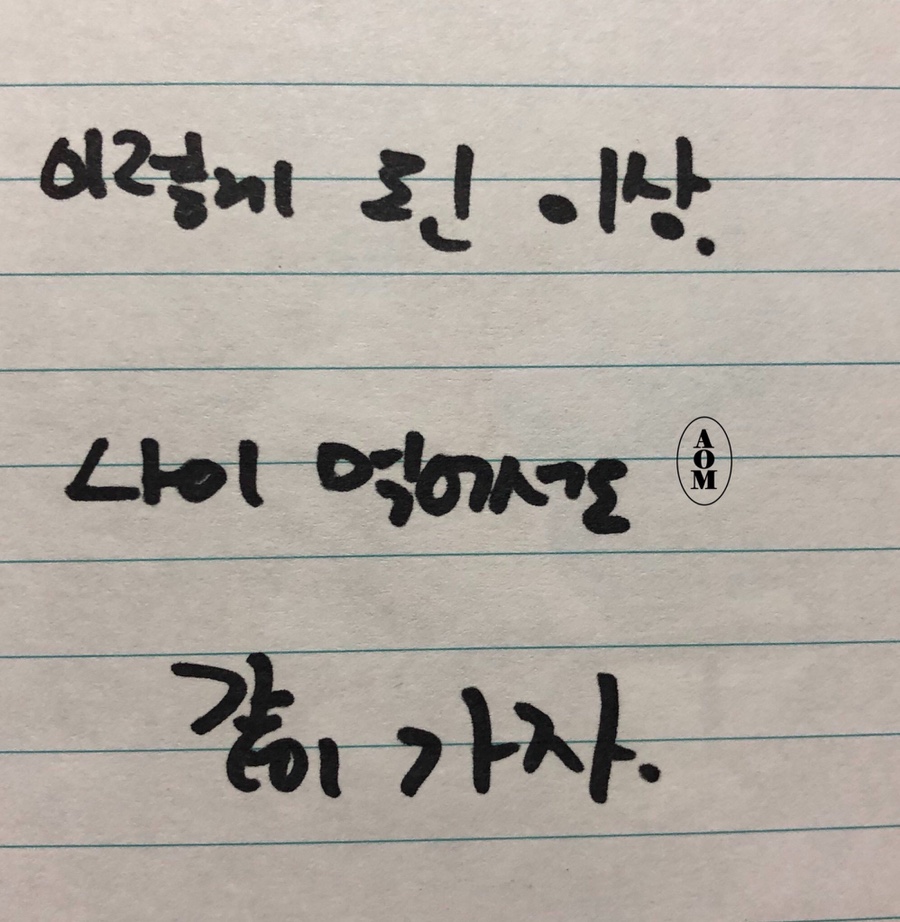 이렇게 된 이상.
나이 먹어서도
AOM
같이 가자.